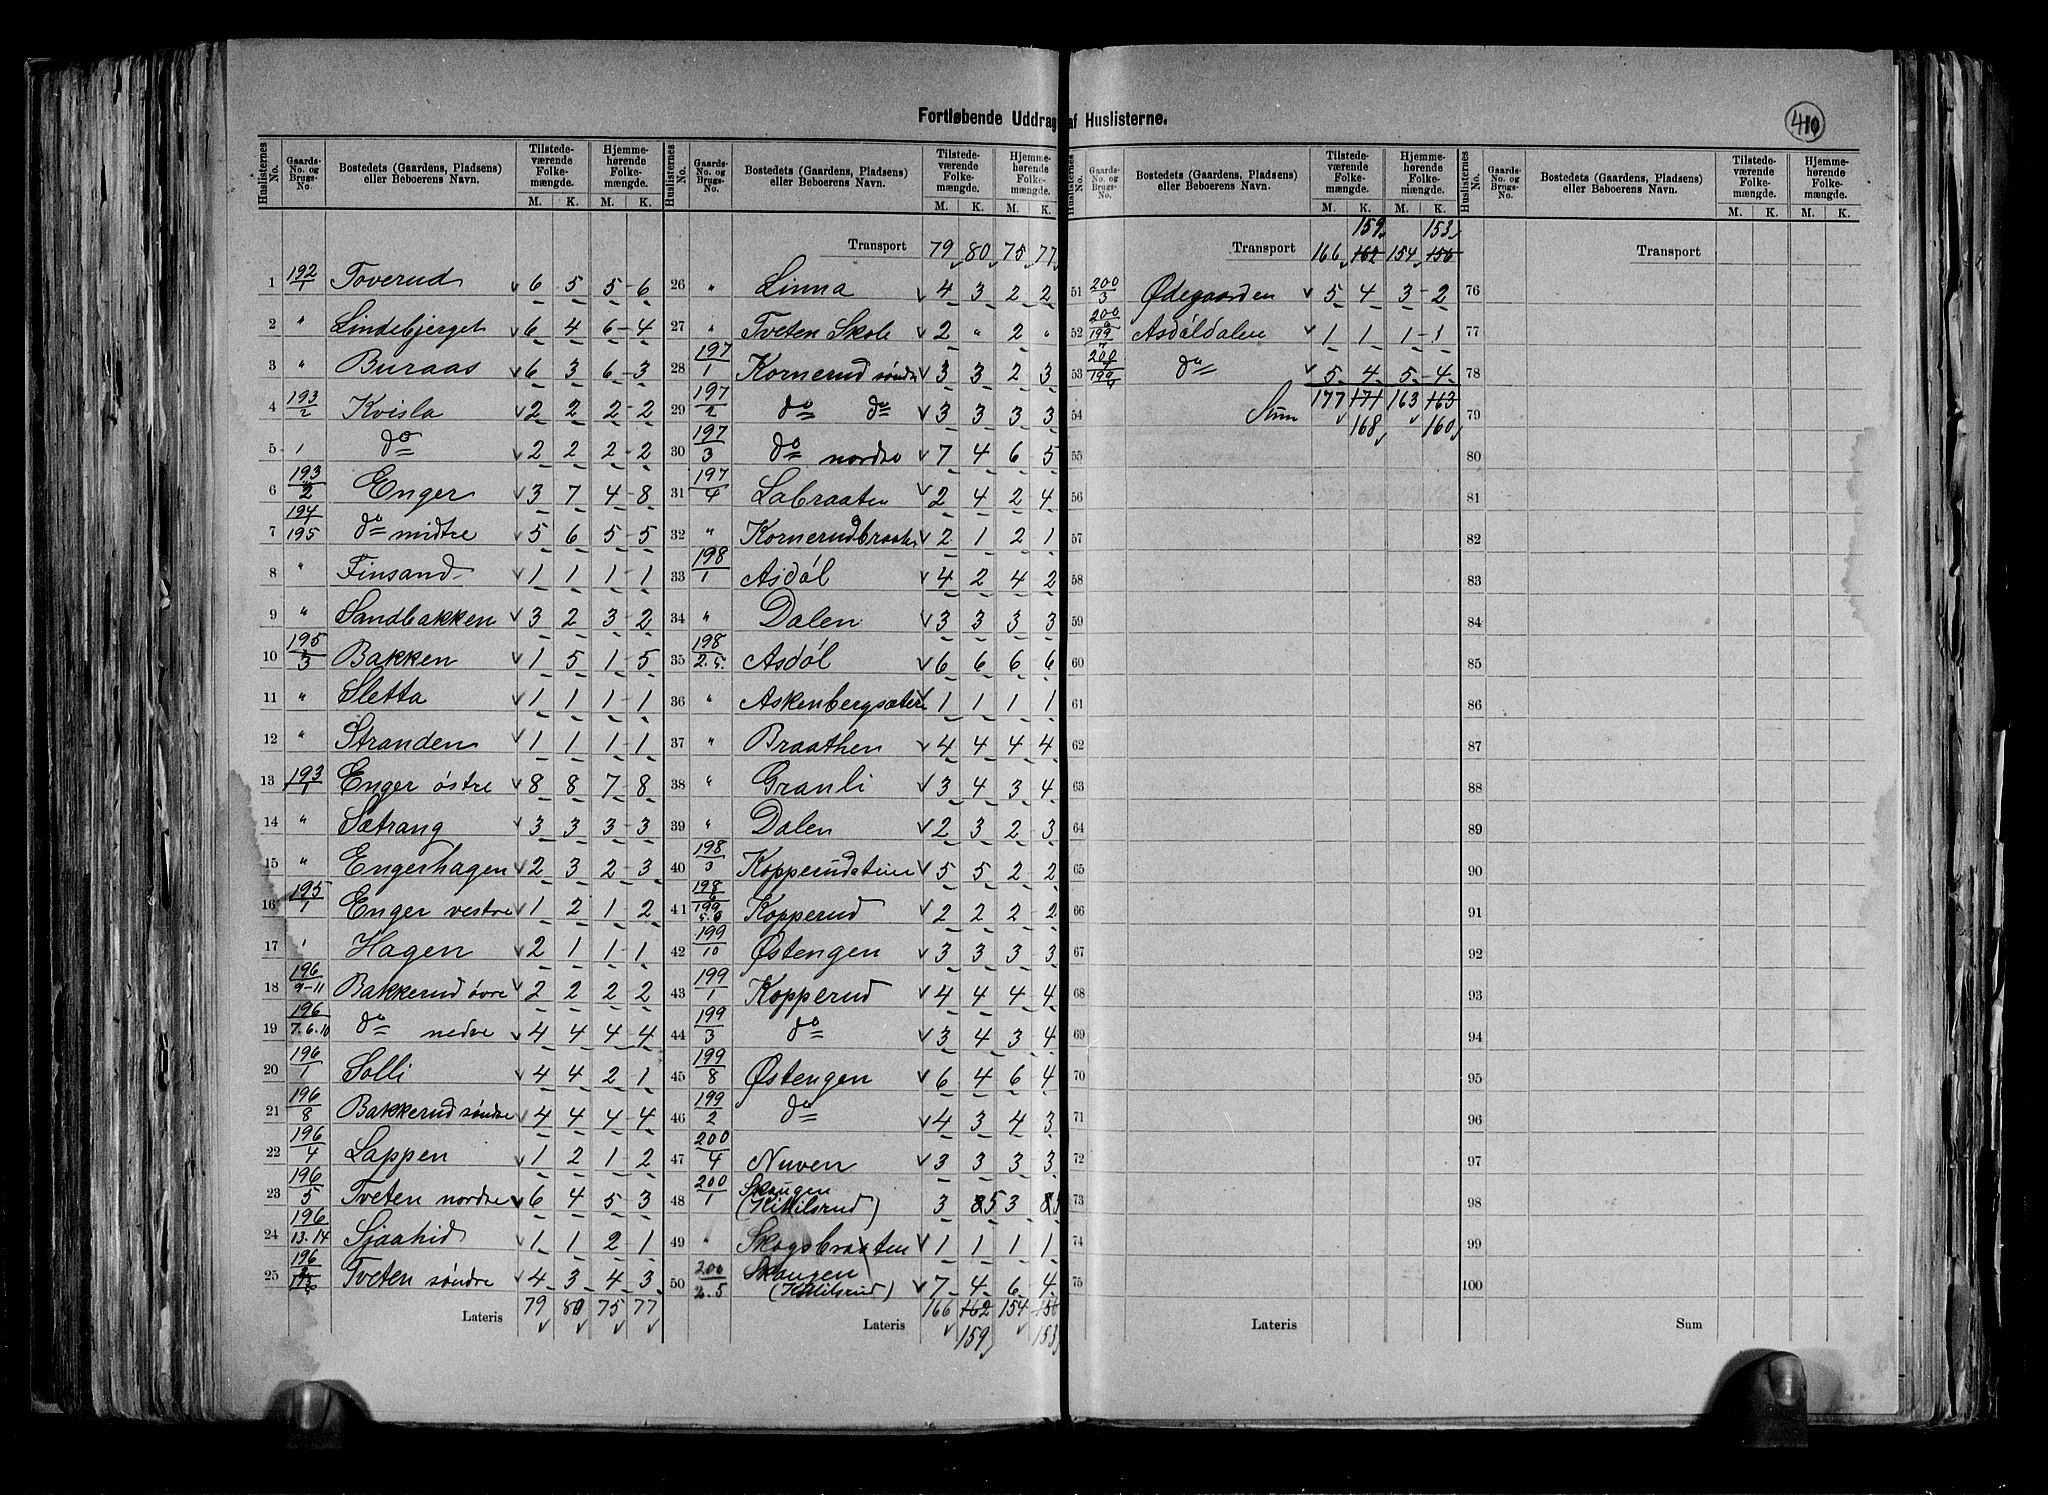 Fortløbende Uddrag af Huslisterne.
410
Huslisternes No. Gaards-No. og Brugs-No. Bostedets (Gaardens, Pladsens) eller Beboerens Navn. Tilstedeværende Folkemængde. M. K. Hjemmehørende Folkemængde. M. K.
1 192/1 Toverud 6 5 5-6
2 " Lindebjerget 6 4 6-4
3 " Buraas 6 3 6-3
4 193/2 Kvisla 2 2 2-2
5 1 do 2 2 2-2
6 193/2 Enger 3 7 4-8
7 194 195 do midtre 5 6 5-5
8 " Finsand 1 1 1-1
9 " Sandbakken 3 2 3-2
10 195/3 Bakken 1 5 1-5
11 " Sletta 1 1 1-1
12 " Stranden 1 1 1-1
13 193/1 Enger østre 8 8 7-8
14 " Sætrang 3 3 3-3
15 " Engerhagen 2 3 2-3
16 195/1 Enger vestre 1 2 1-2
17 " Hagen 2 1 1-1
18 196/9-11 Bakkerud övre 2 2 2 2
19 196/7.6.10 do nedre 4 4 4 4
20 196/1 Solli 4 4 2 1
21 196/8 Bakkerud søndre 4 4 4-4
22 196/4 Lappen 1 2 1 2
23 196/5 Tveten nordre 6 4 5 3
24 196/13.14 Sjaahid 1 1 2 1
25 196 Tveten søndre 4 3 4 3
Lateris 79 80 75 77
Huslisternes No. Gaards-No. og Brugs-No. Bostedets (Gaardens, Pladsens) eller Beboerens Navn. Tilstedeværende Folkemængde. M. K. Hjemmehørende Folkemængde. M. K.
Transport 79 80 75 77
26 " Linna 4 3 2 2
27 " Tveten Skole 2 " 2 "
28 197/1 Kornerud søndre 3 3 2 3
29 197/2 do do 3 3 3 3
30 197/3 do nordre 7 4 6 5
31 197/4 Labraaten 2 4 2 4
32 " Kornerudbraaten 2 1 2 1
33 198/1 Asdøl 4 2 4 2
34 " Dalen 3 3 3 3
35 198/2.5. Asdøl 6 6 6 6
36 " Askenbergsæter 1 1 1 1
37 " Braathen 4 4 4 4
38 " Granli 3 4 3 4
39 " Dalen 2 3 2 3
40 198/3 Kopperudsteine 5 5 2 2
41 198/6 199/5.6 Kopperud 2 2 2-2
42 199/10 Østengen 3 3 3 3
43 199/1 Kopperud 4 4 4 4
44 199/3 do 3 4 3 4
45 199/8 Østengen 6 4 6 4
46 199/2 do 4 3 4 3
47 200/4 Nuven 3 3 3 3
48 200/1 Skougen (Kittilsrud) 3 85 3 85
49 " Skogsbraaten 1 1 1 1
50 200/2.5 Skougen (Kittilsrud) 7 4 6 4
Lateris 166 162 154 156
159 153
Huslisternes No. Gaards-No. og Brugs-No. Bostedets (Gaardens, Pladsens) eller Beboerens Navn. Tilstedeværende Folkemængde. M. K. Hjemmehørende Folkemængde. M. K.
159 153
Transport 166 162 154 156
51 200/3 Ødegaarden 5 4 3-2
52 200 199/7 Asdøldalen 1 1 1-1
53 200 199 do 5 4 5-4
54 Sum 177 171 163 163
168 160
55
56
57
58
59
60
61
62
63
64
65
66
67
68
69
70
71
72
73
74
75
Lateris
Huslisternes No. Gaards-No. og Brugs-No. Bostedets (Gaardens, Pladsens) eller Beboerens Navn. Tilstedeværende Folkemængde. M. K. Hjemmehørende Folkemængde. M. K.
Transport
76
77
78
79
80
81
82
83
84
85
86
87
88
89
90
91
92
93
94
95
96
97
98
99
100
Sum